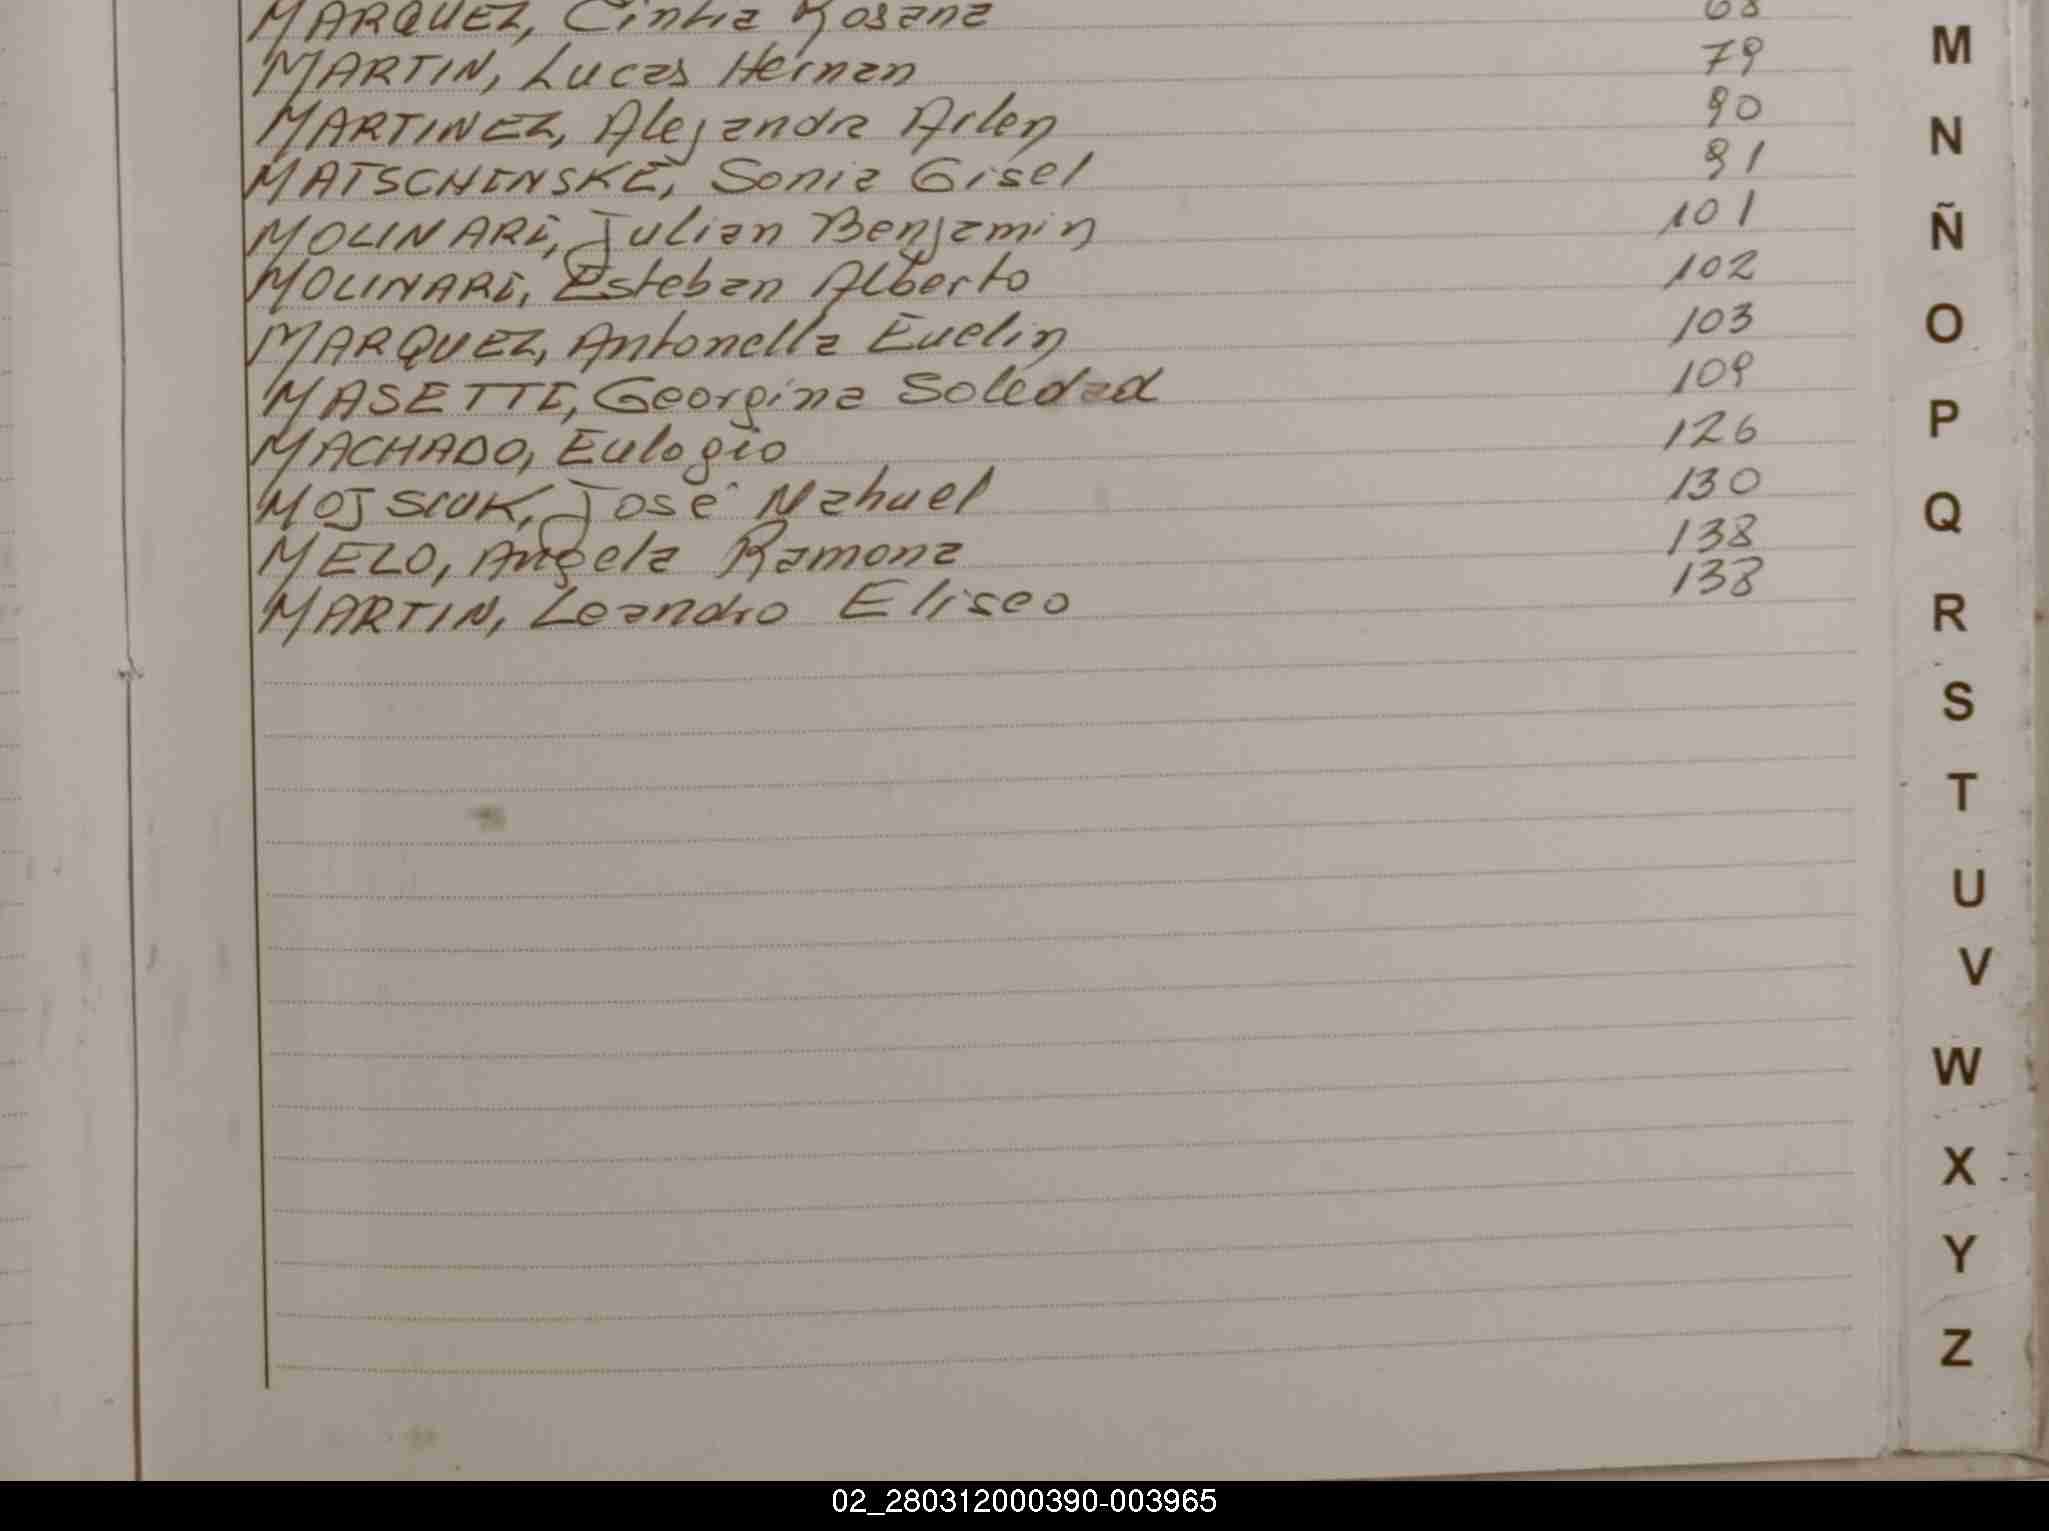 MARQUEZ, Cintia Rosana 68
MARTIN, Lucas Hernan 79
MARTINEZ, Alejandra Arlen 90
MATSCHINSKI, Sonia Gisel 91
MOLINARI, Julian Benjamin 101
MOLINARI, Esteban Alberto 102
MARQUEZ, Antonella Evelin 103
MASETTI, Georgina Soledad 109
MACHADO, Eulogio 126
MOJSIUK, José Nahuel 130
MELO, Angela Ramona 138
MARTIN, Leandro Eliseo 138
M
N
Ñ
O
P
Q
R
S
T
U
V
W
X
Y
Z
02_280312000390-003965